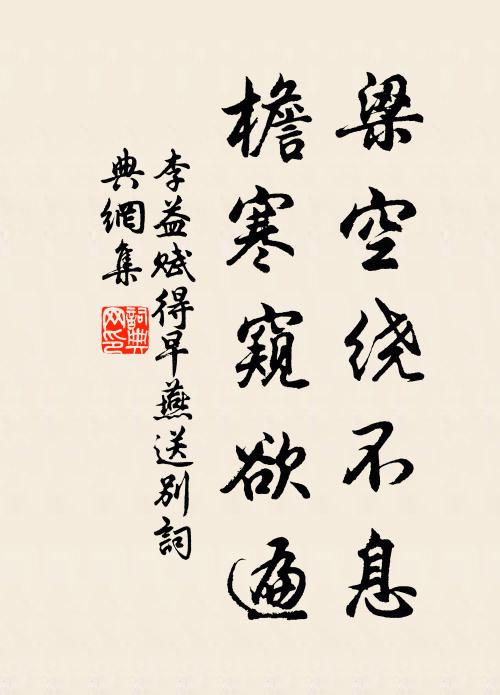 梁空绕不息
檐寒窺欲遍
李益赋得早燕送别詞
典網集
詞典
网印